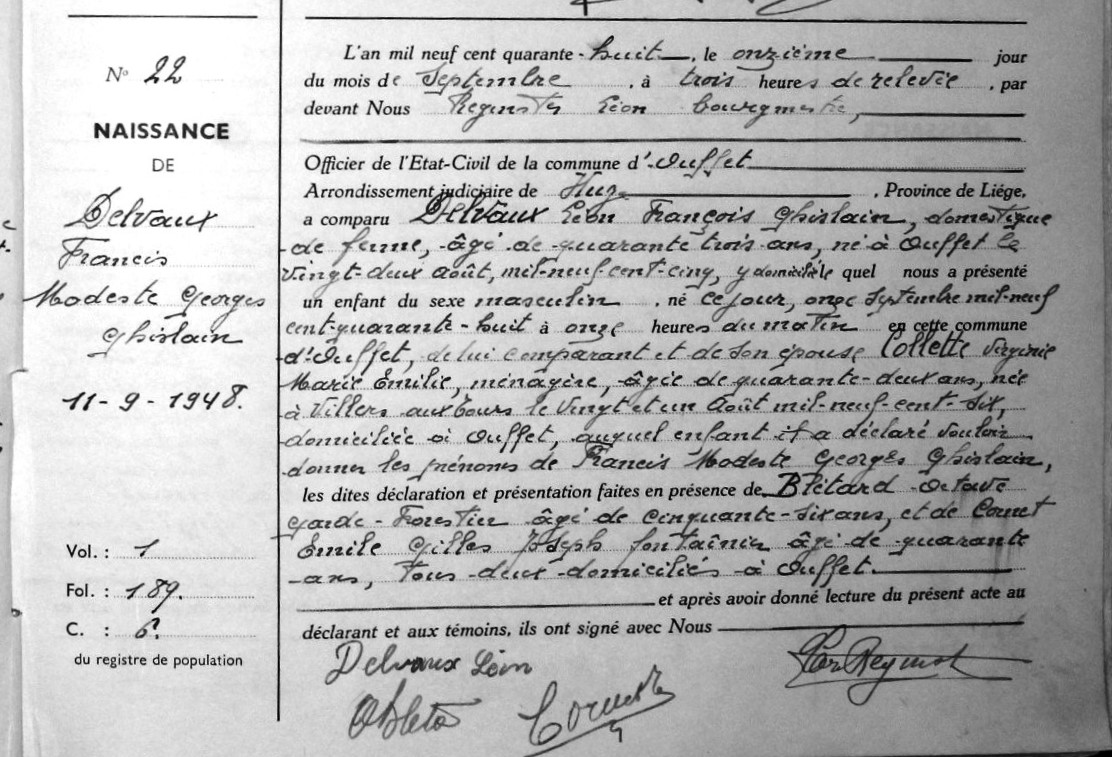 N° 22
NAISSANCE
DE
Delvaux
Francis
Modeste Georges
Ghislain
11-9-1948.
Vol. : 1
Fol. : 189.
C. : 6
du registre de population
L'an mil neuf cent quarante-huit, le onzième jour
du mois de Septembre, à trois heures de relevée, par
devant Nous Léon Bourgmestre,
Officier de l'Etat-Civil de la commune d'Ouffet
Arrondissement judiciaire de Huy, Province de Liége,
a comparu Delvaux Léon François Ghislain, domestique
de ferme, âgé de quarante trois ans, né à Ouffet le
vingt-deux août, mil-neuf-cent-cinq, y domicilié lequel nous a présenté
un enfant du sexe masculin, né ce jour, onze septembre mil-neuf
cent-quarante-huit à onze heures du matin en cette commune
d'Ouffet, de lui comparant et de son épouse Collette Virginie
Marie Emilie, ménagère, âgée de quarante-deux ans, née
à Villers aux tours le vingt et un Août mil-neuf-cent-six,
domiciliée à Ouffet, auquel enfant il a déclaré vouloir
donner les prénoms de Francis Modeste Georges Ghislain,
les dites déclaration et présentation faites en présence de Blétard Octave
Garde-Forestier âgé de cinquante-six ans, et de Cornet
Emile Gilles Joseph fontainier âgé de quarante
ans, tous deux domiciliés à Ouffet.
et après avoir donné lecture du présent acte au
déclarant et aux témoins, ils ont signé avec Nous
Delvaux Léon